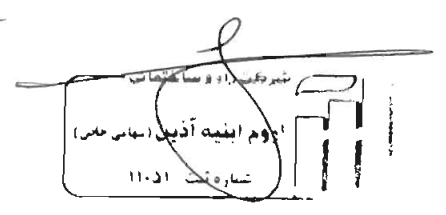 شرکت راه و ساختمانی
اروم ابنیه آذین (سهامی خاص)
شماره ثبت ۱۱۰۵۱